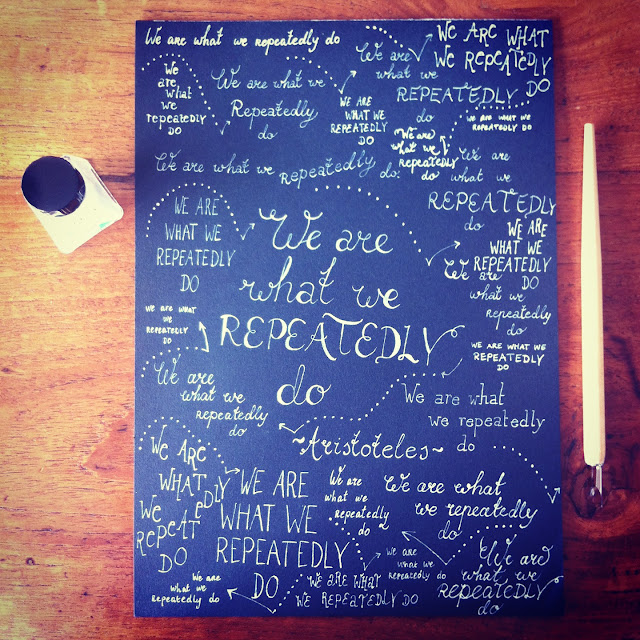 We are what we repeatedly do
We are
what we
REPEATEDLY
do
WE ARE WHAT
WE REPEATEDLY
DO
We
are
what
we
repeatedly
DO
We are what we
Repeatedly
do
WE ARE
WHAT WE
REPEATEDLY
DO
WE ARE WHAT WE
REPEATEDLY DO
We are
what we
repeatedly
do
We are what we repeatedly do.
We are
what we
REPEATEDLY
do
WE ARE
WHAT WE
REPEATEDLY
DO
We are
what we
REPEATEDLY
do
WE ARE
WHAT WE
REPEATEDLY
DO
We are
what we
repeatedly
do
WE ARE WHAT
WE
REPEATEDLY
DO
WE ARE WHAT WE
REPEATEDLY
DO
We are
what we
repeatedly
do
We are what
we repeatedly
do
~Aristoteles~
WE ARE
WHAT
WE
REPEATEDLY
DO
WE ARE
WHAT WE
REPEATEDLY
DO
We are
what we
repeatedly
do
We are what
we repeatedly
do
we are
what we
repeatedly do
We are
what we
repeatedly
do
we are
what we
repeatedly do
WE ARE WHAT
WE REPEATEDLY DO